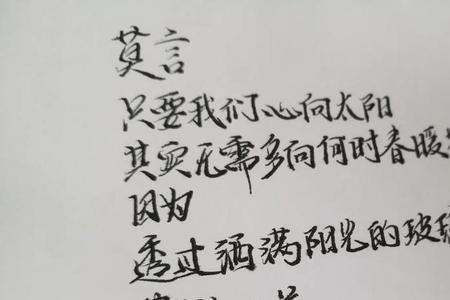 莫言
只要我们心向太阳
其实无需多问何时春暖
因为
透过洒满阳光的玻